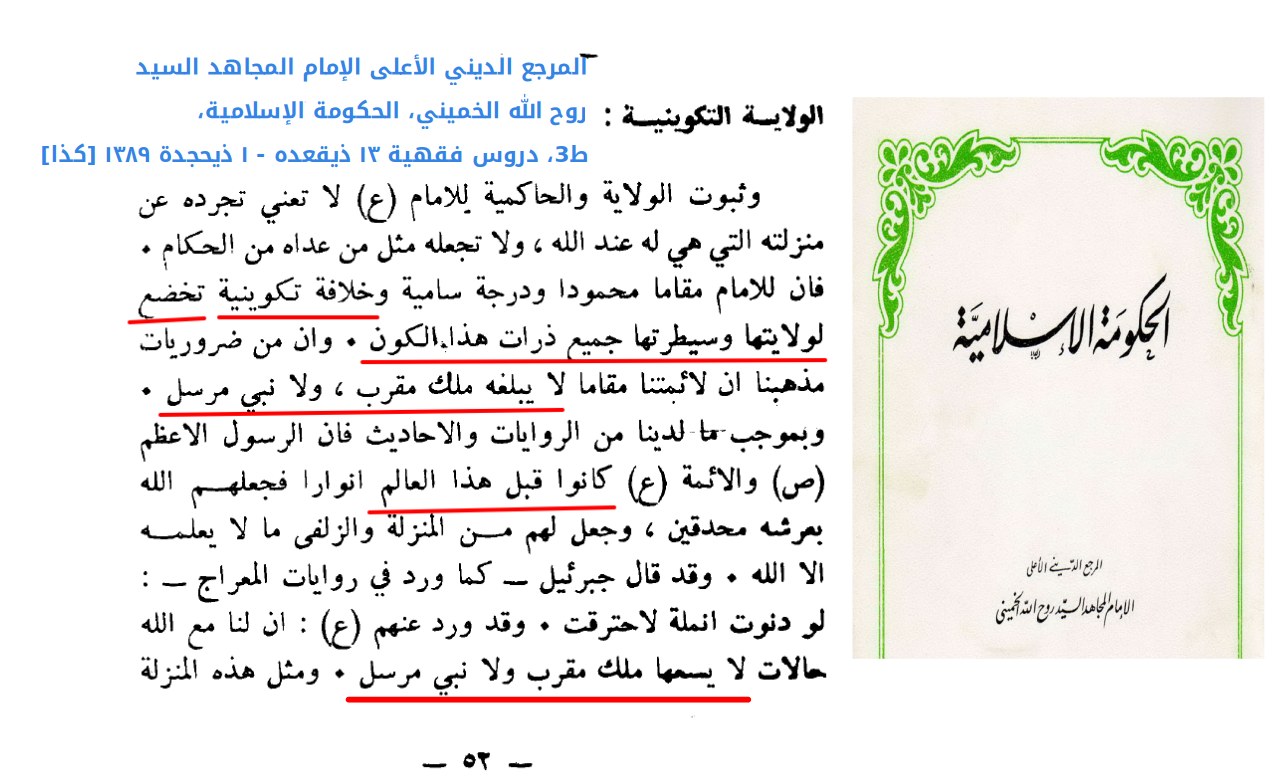 المرجع الديني الأعلى الإمام المجاهد السيد
روح الله الخميني، الحكومة الإسلامية،
ط3، دروس فقهية ١٣ ذيقعده - ١ ذيحجدة ١٣٨٩ [كذا]
الولاية التكوينية :
وثبوت الولاية والحاكمية للامام (ع) لا تعني تجرده عن
منزلته التي هي له عند الله ، ولا تجعله مثل من عداه من الحكام .
فان للامام مقاما محمودا ودرجة سامية وخلافة تكوينية تخضع
لولايتها وسيطرتها جميع ذرات هذا الكون . وان من ضروريات
مذهبنا ان لائمتنا مقاما لا يبلغه ملك مقرب ، ولا نبي مرسل .
وبموجب ما لدينا من الروايات والاحاديث فان الرسول الاعظم
(ص) والائمة (ع) كانوا قبل هذا العالم انوارا فجعلهم الله
بعرشه محدقين ، وجعل لهم من المنزلة والزلفى ما لا يعلمه
الا الله . وقد قال جبرئيل ــ كما ورد في روايات المعراج ــ :
لو دنوت انملة لاحترقت . وقد ورد عنهم (ع) : ان لنا مع الله
حالات لا يسعها ملك مقرب ولا نبي مرسل . ومثل هذه المنزلة
ــ ٥٢ ــ
الحكومة الإسلامية
المرجع الديني الأعلى
الإمام المجاهد السيد روح الله الخميني